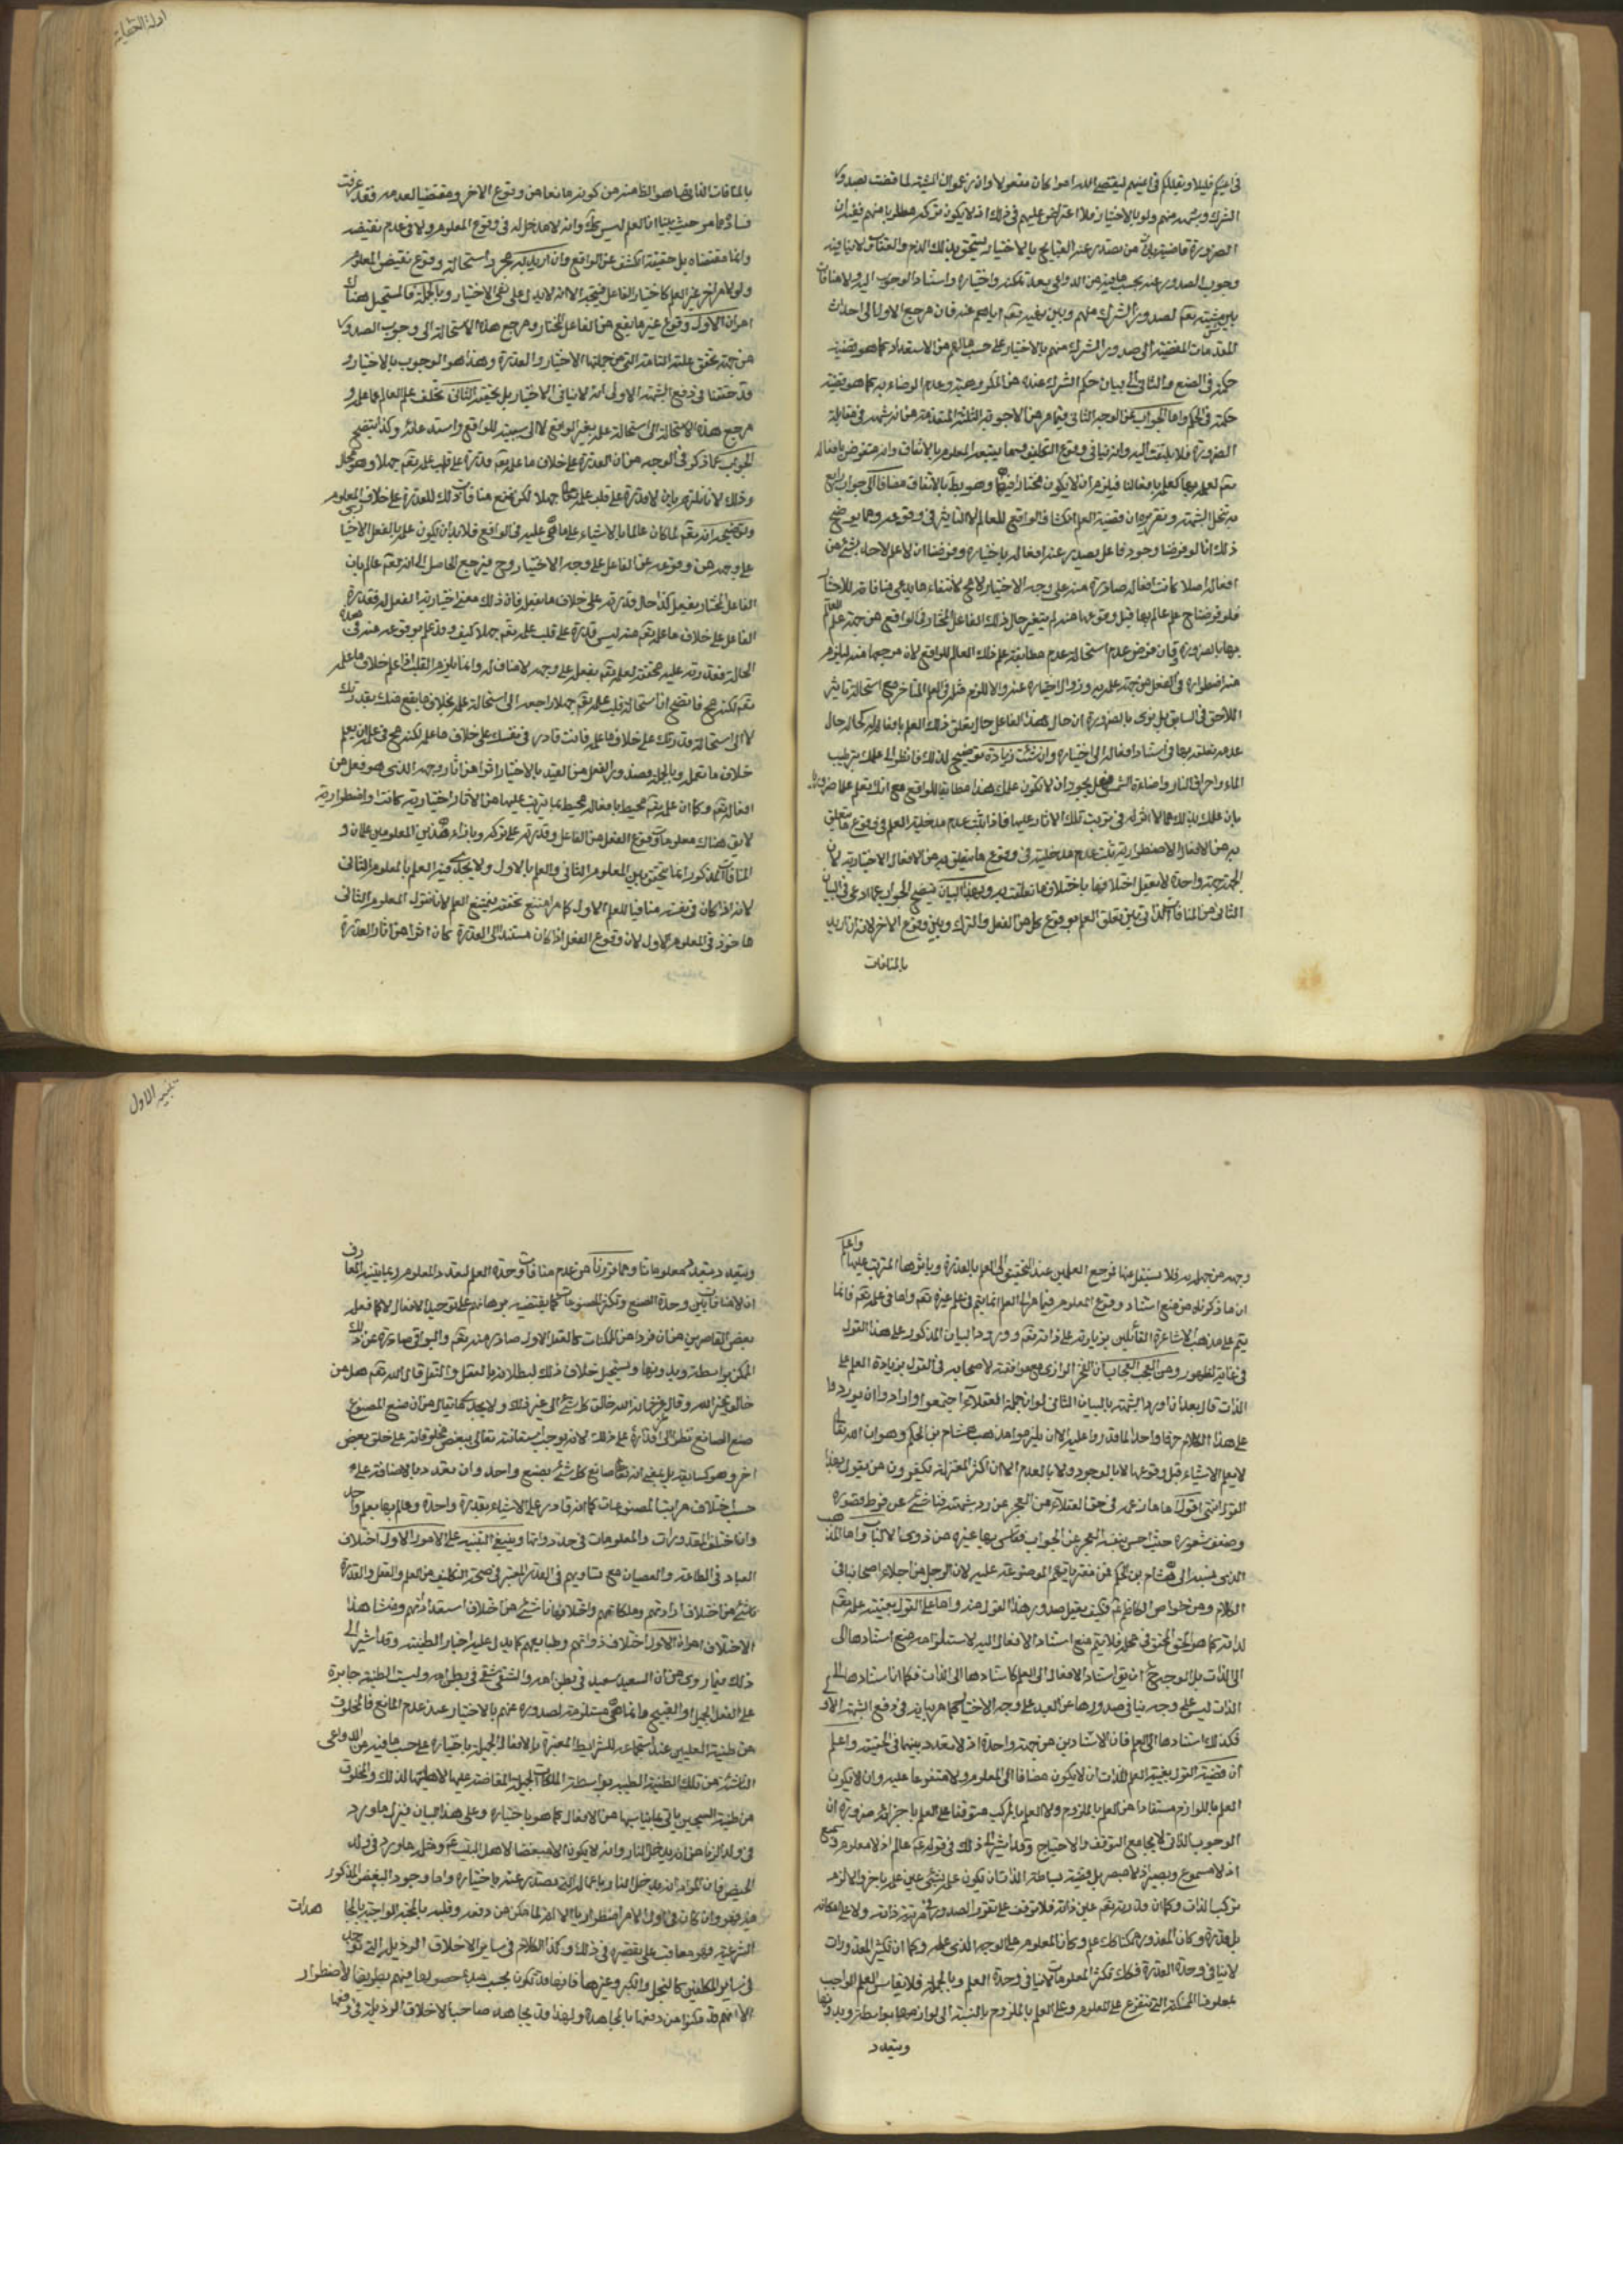 في اعينكم قليلا ويقللكم في اعينهم ليقضي الله امرا كان مفعولا وان زعموا ان المشية لما قضت بصدور
الشرك منهم ولو بالاختيار فلا اعتراض عليهم في ذلك اذ لا يكون تركه مطلوبا منهم فيه ان
الضرورة قاضية بان من يصدر عنه القبايح بالاختيار يستحق بذلك الذم والعقاب لا ينافيه
وجوب الصدور عنه بحسب ما فيه من الدواعي بعد تمكنه واختياره واستناد الوجوب اليه ولا منافات
بين مشيته تعم لصدور الشرك منهم وبين نهيه تعم اياهم عنه فان مرجع الاول الى احداث
المقدمات المفضية الى صدور الشرك منهم بالاختيار على حسب ما لهم من الاستعداد كما هو قضية
حكمته في الصنع والثاني الى بيان حكم الشرك عنده من المكروهية وعدم الرضاء به كما هو قضية
حكمته في الحكم واما الجواب عن الوجه الثاني فيما مر من الاجوبة الثلثة المتقدمة من انه شبهة في مقابلة
الضرورة فلا يلتفت اليه وانه ينافي وقوع التكليف وهما يتبعد المعلوم بالاتفاق وانه منقوض بافعاله
تعم لعلمه بها كعلمه بافعالنا فيلزم ان لا يكون مختارا فيها وهو بط بالاتفاق مضافا الى جواب رابع
به تنحل الشبهة وتقريره ان قضية العلم انكشاف الواقع للعالم لا التاثير في وقوعه وهما يوضح
ذلك انا لو فرضنا وجود فاعل يصدر عنه افعاله باختياره وفرضنا ان لا علم لاحد بشئ من
افعاله اصلا كانت افعاله صادرة منه على وجه الاختيار لا مح لانتفاء ما يدعى منافاته للاختيار
فلو فرضنا ح علم عالم بها قبل وقوعها منه لم يتغير حال ذلك الفاعل المختار في الواقع من جهة علم العالم
بها بالضرورة وان فرض عدم استحالة عدم مطابقة علم ذلك العالم للواقع لان مرجعها منه ليلزم
منه اضطراره في الفعل من جهة علمه به وزوال اختياره عنه والا للزم مثله في العلم المتاخر وهي استحالة تاثير
اللاحق في السابق بل نرى بالضرورة ان حال هذا الفاعل حال تعلق ذلك العلم بافعاله كحاله حال
عدم تعلقه بها في استناد افعاله الى اختياره وان شئت زيادة توضيح لذلك فانظر الى علمك بترطيب
الماء واحراق النار واضاءة الشمس فهل يجوز ان لا يكون علمك هذا مطابقا للواقع مع انك تعلم علما ضروريا
بان علمك بذلك مما لا اثر له في ترتب تلك الاثار عليها فاذا ثبت عدم مدخلية العلم في وقوع ما تعلق
به من الافعال الاضطرارية ثبت عدم مدخليته في وقوع ما يتعلق به من الافعال الاختيارية لان
الجهة جهة واحدة لا يعقل اختلافها باختلاف ما تعلقت به وبهذا البيان يتضح الجواب عما ادعى في البيان
الثاني من المنافات الذاتي بين تعلق العلم بوقوع كل من الفعل والترك وبين وقوع الاخر لانه ان اريد
بالمنافات
ادلة العقلية
بالمنافات الذاتي ما هو الظ منه من كونه مانعا من وقوع الاخر ومقتضا لعدمه فقد عرفت
فساد ما مر حيث بينا ان العلم ليس كك وانه لا مدخل له في وقوع المعلوم ولا في عدم نقيضه
وانما مقتضاه بل حقيقته الكشف عن الواقع وان اريد به مجرد استحالة وقوع نقيض المعلوم
ولو لامر اخر غير العلم كاختيار الفاعل فيتجه الا انه لا يدل على نفي الاختيار وبالجملة فالمستحيل هناك
امران الاول وقوع غير ما يقع من الفاعل المختار ومرجع هذا الاستحالة الى وجوب الصدور
من جهة تحقق علته التامة التي من جملتها الاختيار والقدرة وهذا هو الوجوب بالاختيار و
قد حققنا في دفع الشبهة الاولى انه لا ينافي الاختيار بل يحققه الثاني تخلف علم العالم عما علم و
مرجع هذه الاستحالة الى استحالة علمه بغير الواقع لا الى سببيته للواقع واستدعائه وكذا يتضح
الجواب عما ذكر في الوجه من ان القدرة على خلاف ما علمه تعم قدرة على قلب علمه تعم جهلا وهو محال
وذلك لانا نلتزم بان لا قدرة على قلب علمه تعم جهلا لكن نمنع منافات ذلك للقدرة على خلاف المعلوم
وتوضيحه انه تعم لما كان عالما بالاشياء على ما هي عليه في الواقع فلا بد ان يكون علمه بالفعل الاختياري
على وجه من وقوعه عن الفاعل على وجه الاختيار وح فيرجع الحاصل الى انه تعم عالم بان
الفاعل المختار يفعل كذا حال قدرته على خلاف ما يفعل فان ذلك معنى اختيارية الفعل له فقدرة
الفاعل على خلاف ما علمه تعم منه ليس قدرة على قلب علمه تعم جهلا كيف وقد علم بوقوعه منه في هذه
الحالة فقدرته عليه محققة لعلمه تعم بفعل على وجه لا مناف له وانما يلزم القلب لو فعل خلاف ما علمه
تعم لكنه مح فاتضح ان استحالة قلب علمه تعم جهلا راجعة الى استحالة علمه بخلاف ما يقع منك بقدرتك
لا الى استحالة قدرتك على خلاف ما علم فانت قادر في نفسك على خلاف ما علم لكنه مح في علمه ان يعلم
خلاف ما تعمل وبالجملة فصدور الفعل من العبد بالاختيار اثر من اثار وجوده الذي هو فعل من
افعاله تعم وكما ان علمه تعم محيط بافعاله محيط بما يترتب عليها من الاثار اختيارية كانت او اضطرارية
لا يق هناك معلومان وقوع الفعل من الفاعل وقدرته على تركه وبازاء هذين المعلومين علمان و
المنافات المذكورة انما يتحقق بين المعلوم الثاني والعلم بالاول ولا يجدي فيه العلم بالمعلوم الثاني
لانه اذا كان في نفسه منافيا للعلم الاول كما مر امتنع تحققه فيمتنع العلم لانا نقول المعلوم الثاني
ماخوذ في المعلوم الاول لان وقوع الفعل اذا كان مستندا الى القدرة كان اثرا من اثار القدرة
واعلم
وجهه من جهاته فلا يستقل عنها فمرجع العلمين عند التحقيق الى العلم بالقدرة وباثرها المترتب عليها
ان ما ذكرناه من منع استناد وقوع المعلوم فيما مر الى العلم انما يتم في علم غيره تعم واما في علمه تعم فانما
يتم على مذهب الاشاعرة القائلين بزيادته على ذاته تعم وورود البيان المذكور على هذا القول
في غاية الظهور ومن العجب العجاب ان الفخر الرازي مع موافقته لاصحابه في القول بزيادة العلم على
الذات قال بعد ان اورد الشبهة بالبيان الثاني لو ان جملة العقلاء اجتمعوا وارادوا ان يوردوا
على هذا الكلام حرفا واحدا لما قدروا عليه الا ان يلتزموا مذهب هشام بن الحكم وهو ان الله تعالى
لا يعلم الاشياء قبل وقوعها لا بالوجود ولا بالعدم الا ان اكثر المعتزلة يكفرون من يقول بهذا
القول انتهى اقول اما ما زعمه في حق العقلاء من العجز عن رد شبهته فناشئ عن فرط قصوره
وضعف شعوره حيث احس بنفسه العجز عن الجواب فقاس بها غيره من ذوي الالباب واما المذهب
الذي نسبه الى هشام بن الحكم فمن مفترياتهم الموضوعة عليه لان الرجل من اجلاء اصحابنا في
الكلام ومن خواص الكاظم ع فكيف يعقل صدور هذا القول منه واما على القول بعينية علمه تعم
لذاته كما هو الحق المحقق في محله فلا يتم منع استناد الافعال اليه لاستلزامه منع استنادها الى
الى الذات بل الوجه ح ان يق استناد الافعال الى العلم كاستنادها الى الذات فكما ان استنادها الى
الذات ليس على وجه ينافي صدورها عن العبد على وجه الاختيار كما مر بيانه في دفع الشبهة الاولى
فكذلك استنادها الى العلم فان الاستنادين من جهة واحدة اذ لا تعدد بينهما في الحقيقة واعلم
ان قضية القول بعينية العلم للذات ان لا يكون مضافا الى المعلوم ولا متفرعا عليه وان لا يكون
العلم باللوازم مستفادا من العلم بالملزوم ولا العلم بالمركب متوقفا على العلم باجزائه ضرورة ان
الوجوب الذاتي لا يجامع التوقف والاحتياج وقد اشير الى ذلك في قوله ع عالم اذ لا معلوم وسميع
اذ لا مسموع وبصير اذ لا مبصر بل قضية بساطة الذات ان يكون علمه بشئ عين علمه باخر والا لزم
تركب الذات وكما ان قدرته تعم عين ذاته فلا تتوقف على تقرر المقدور في مرتبة ذاته ولا على امكانه
بل قدرة وكان المقدور ممكنا كك علم وكان المعلوم على الوجه الذي علمه وكما ان تكثر المقدورات
لا ينافي وحدة القدرة فكك تكثر المعلومات لا ينافي وحدة العلم وبالجملة فلا يقاس العلم الواجب
بعلومنا الممكنة التي تتفرع على المعلوم وعلى العلم بالملزوم بالنسبة الى لوازمها بواسطة وبدونها
ويتعدد
تنبيه الاول
ويتعدد بتعدد معلوماتنا وهما قررنا من عدم منافات وحدة العلم لتعدد المعلوم وعينيته العارف
ان لا منافات بين وحدة الصنع وتكثر المصنوعات كما يقتضيه برهانهم على توحيد الافعال لا كما فعله
بعض القاصرين من ان فردا من الممكنات كالعقل الاول صادر منه تعم والبواقي صادرة عن ذلك
الممكن بواسطة وبدونها ويستحيل خلاف ذلك لبطلانه بالعقل والنقل قال الله تعم هل من
خالق غير الله وقال عز شانه الله خالق كل شئ الى غير ذلك ولا يجدي كما يقال من ان صنع المصنوع
صنع الصانع نظرا الى اقداره على ذلك لانه يوجب استعانته تعالى ببعض مخلوقاته على خلق بعض
اخر وهو كسابقه بل ينبغي انه تعالى صانع كل شئ بصنع واحد وان تعدد بالاضافة على
حسب اختلاف مراتب المصنوعات كما انه قادر على الاشياء بقدرة واحدة وعالم بها بعلم واحد
وان اختلف المقدورات والمعلومات في حد ذواتها وينبغي التنبيه على الامور الاول اختلاف
العباد في الطاعة والعصيان مع تساويهم في القدر المعتبر في صحة التكليف من العلم والعقل والقدرة
ناشئ من اختلاف ارادتهم وملكاتهم واختلافها ناشئ من اختلاف استعداداتهم ومنشا هذا
الاختلاف امران الاول اختلاف ذواتهم وطبايعهم كما يدل عليه اخبار الطينة وقد اشير الى
ذلك فيما روى من ان السعيد سعيد في بطن امه والشقي شقي في بطن امه وليست الطينة جابرة
على الفعل الجميل او القبيح وانما هي مستلزمة لصدوره عنهم بالاختيار عند عدم المانع فالمخلوق
من طينة العليين عند استجماعه للشرايط المعتبرة يات بالافعال الجميلة باختياره على حسب ما فيه من الدواعي
الناشئة من تلك الطينة الطيبة بواسطة الملكات الجميلة المفاضة عليها لاهليتها لذلك والمخلوق
من طينة السجين ياتي بما يناسبها من الافعال كما هو باختياره وعلى هذا البيان فنزل ما ورد
في ولد الزنا من انه يدخل النار وانه لا يكون الا مبغضا لاهل البيت ع وحمل ما ورد في ولد
الحيض فان المراد انه يدخل النار باعماله التي تصدر عنه باختياره واما وجود البغض المذكور
فيه فهو وان كان في اول الامر اضطراريا الا انه لما تمكن من دفعه وقلبه بالمحبة الواجبة بالمجاهدات
الشرعية فهو معاقب على تقصيره في ذلك وكذا الكلام في ساير الاخلاق الرذيلة التي توجد
في ساير المكلفين كالبخل والكبر وغيرها فانها قد تكون بحسب مبدء حصولها فيهم بطريق الاضطرار
الا انهم قد تمكنوا من دفعها بالمجاهدة ولهذا قد يجاهد صاحب الاخلاق الرذيلة في دفعها